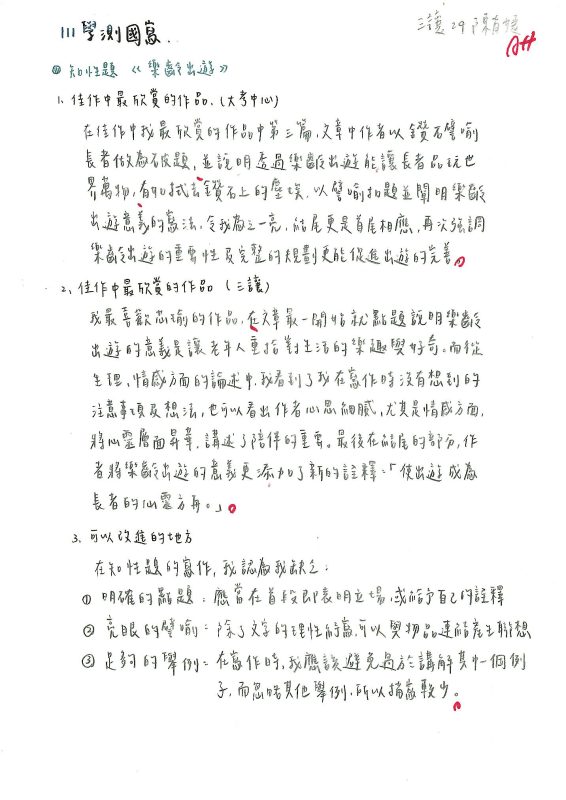 111學測國寫.
三讓 29 陳
A++
知性題 《樂齡出遊》
1. 佳作中最欣賞的作品.(大考中心)
在佳作中我最欣賞的作品中第三篇,文章中作者以鑽石譬喻
長者做為破題,並說明透過樂齡出遊能讓長者品玩世
界萬物,有如拭去鑽石上的塵埃.以譬喻扣題並闡明樂齡
出遊意義的寫法,令我為之一亮,結尾更是首尾相應,再次強調
樂齡出遊的重要性及完整的規劃更能促進出遊的完善。
2. 佳作中最欣賞的作品(三讓)
我最喜歡芯瑜的作品.在文章最一開始就點題說明樂齡
出遊的意義是讓老年人重拾對生活的樂趣與好奇。而從
生理,情感方面的論述中,我看到了我在寫作時沒有想到的
注意事項及想法,也可以看出作者心思細膩,尤其是情感方面,
將心靈層面昇華,講述了陪伴的重要。最後在結尾的部分,作
者將樂齡出遊的意義更添加了新的詮釋:「使出遊成為
長者的心靈方舟。」
3. 可以改進的地方
在知性題的寫作,我認為我缺乏:
① 明確的點題:應當在首段即表明立場,或給予自己的詮釋
② 亮眼的譬喻:除了文字的理性紓寫,可以與物品連結產生聯想
③ 足夠的舉例:在寫作時,我應該避免過於講解其中一個例
子,而忽略其他舉例,所以描寫較少。